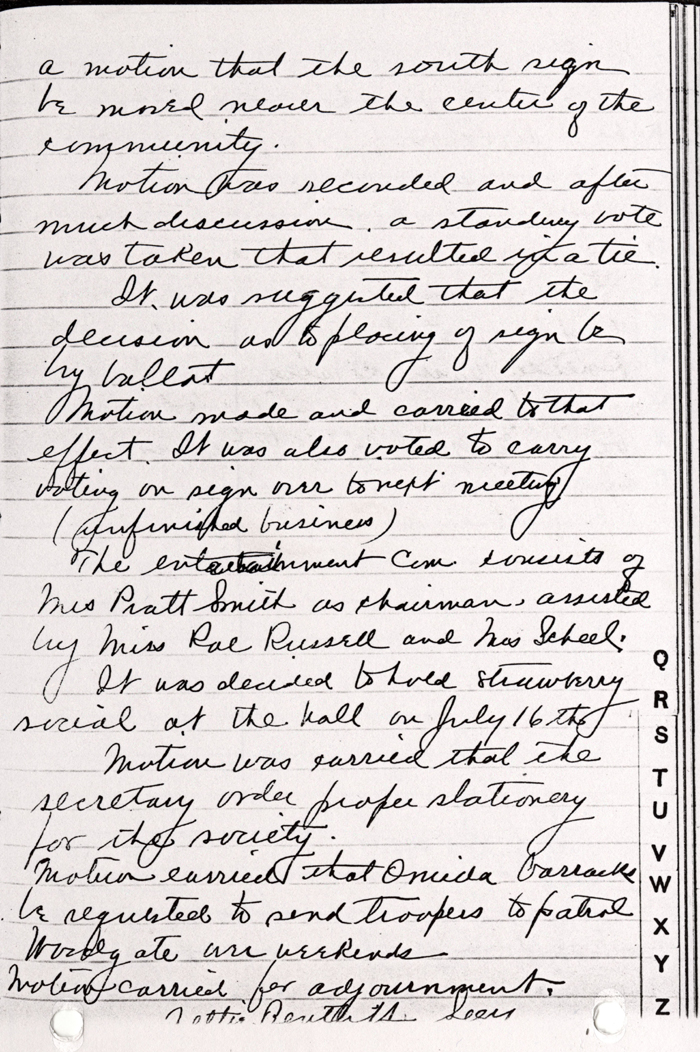 a motion that the south sign
be moved nearer the center of the
community.
Motion was seconded and after
much discussion, a standing vote
was taken that resulted in a tie.
It was suggested that the
decision as to placing of sign be
by ballot
Motion made and carried to that
effect. It was also voted to carry
voting on sign over to next meeting
(unfinished business)
The entertainment Com. consists of
Mrs Pratt Smith as chairman, assisted
by Miss Rae Russell and Mrs Scheel.
It was decided to hold strawberry
social at the hall on July 16th
Motion was carried that the
secretary order proper stationery
for the society.
Motion carried that Oneida barracks
be requested to send troopers to patrol
Woodgate on weekends
Motion carried for adjournment.
Secy
Q
R
S
T
U
V
W
X
Y
Z